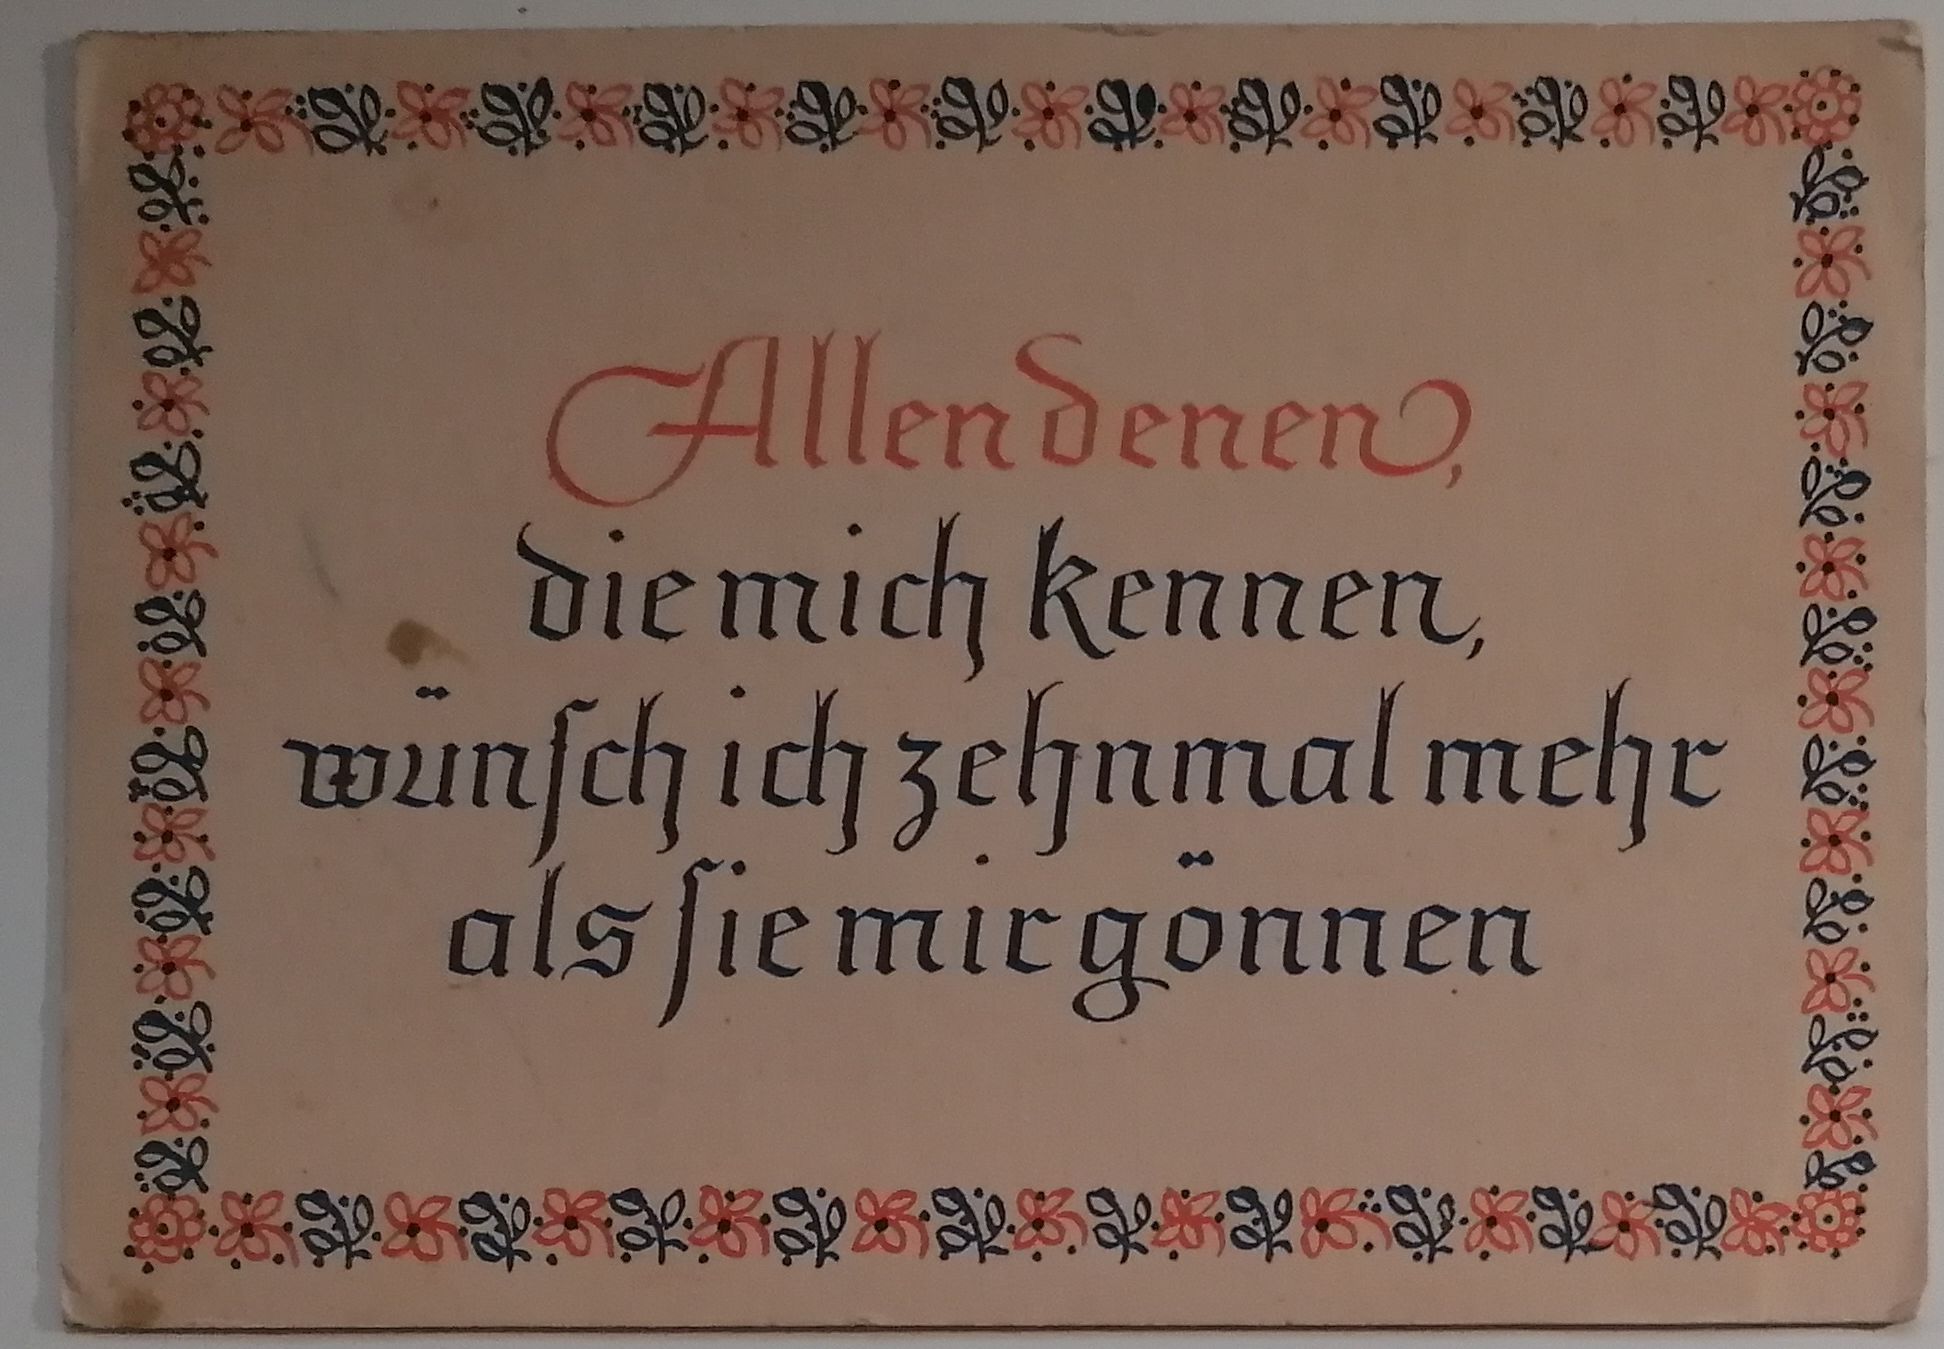 Allen denen,
die mich kennen,
wünſch ich zehnmal mehr
als ſie mir gönnen